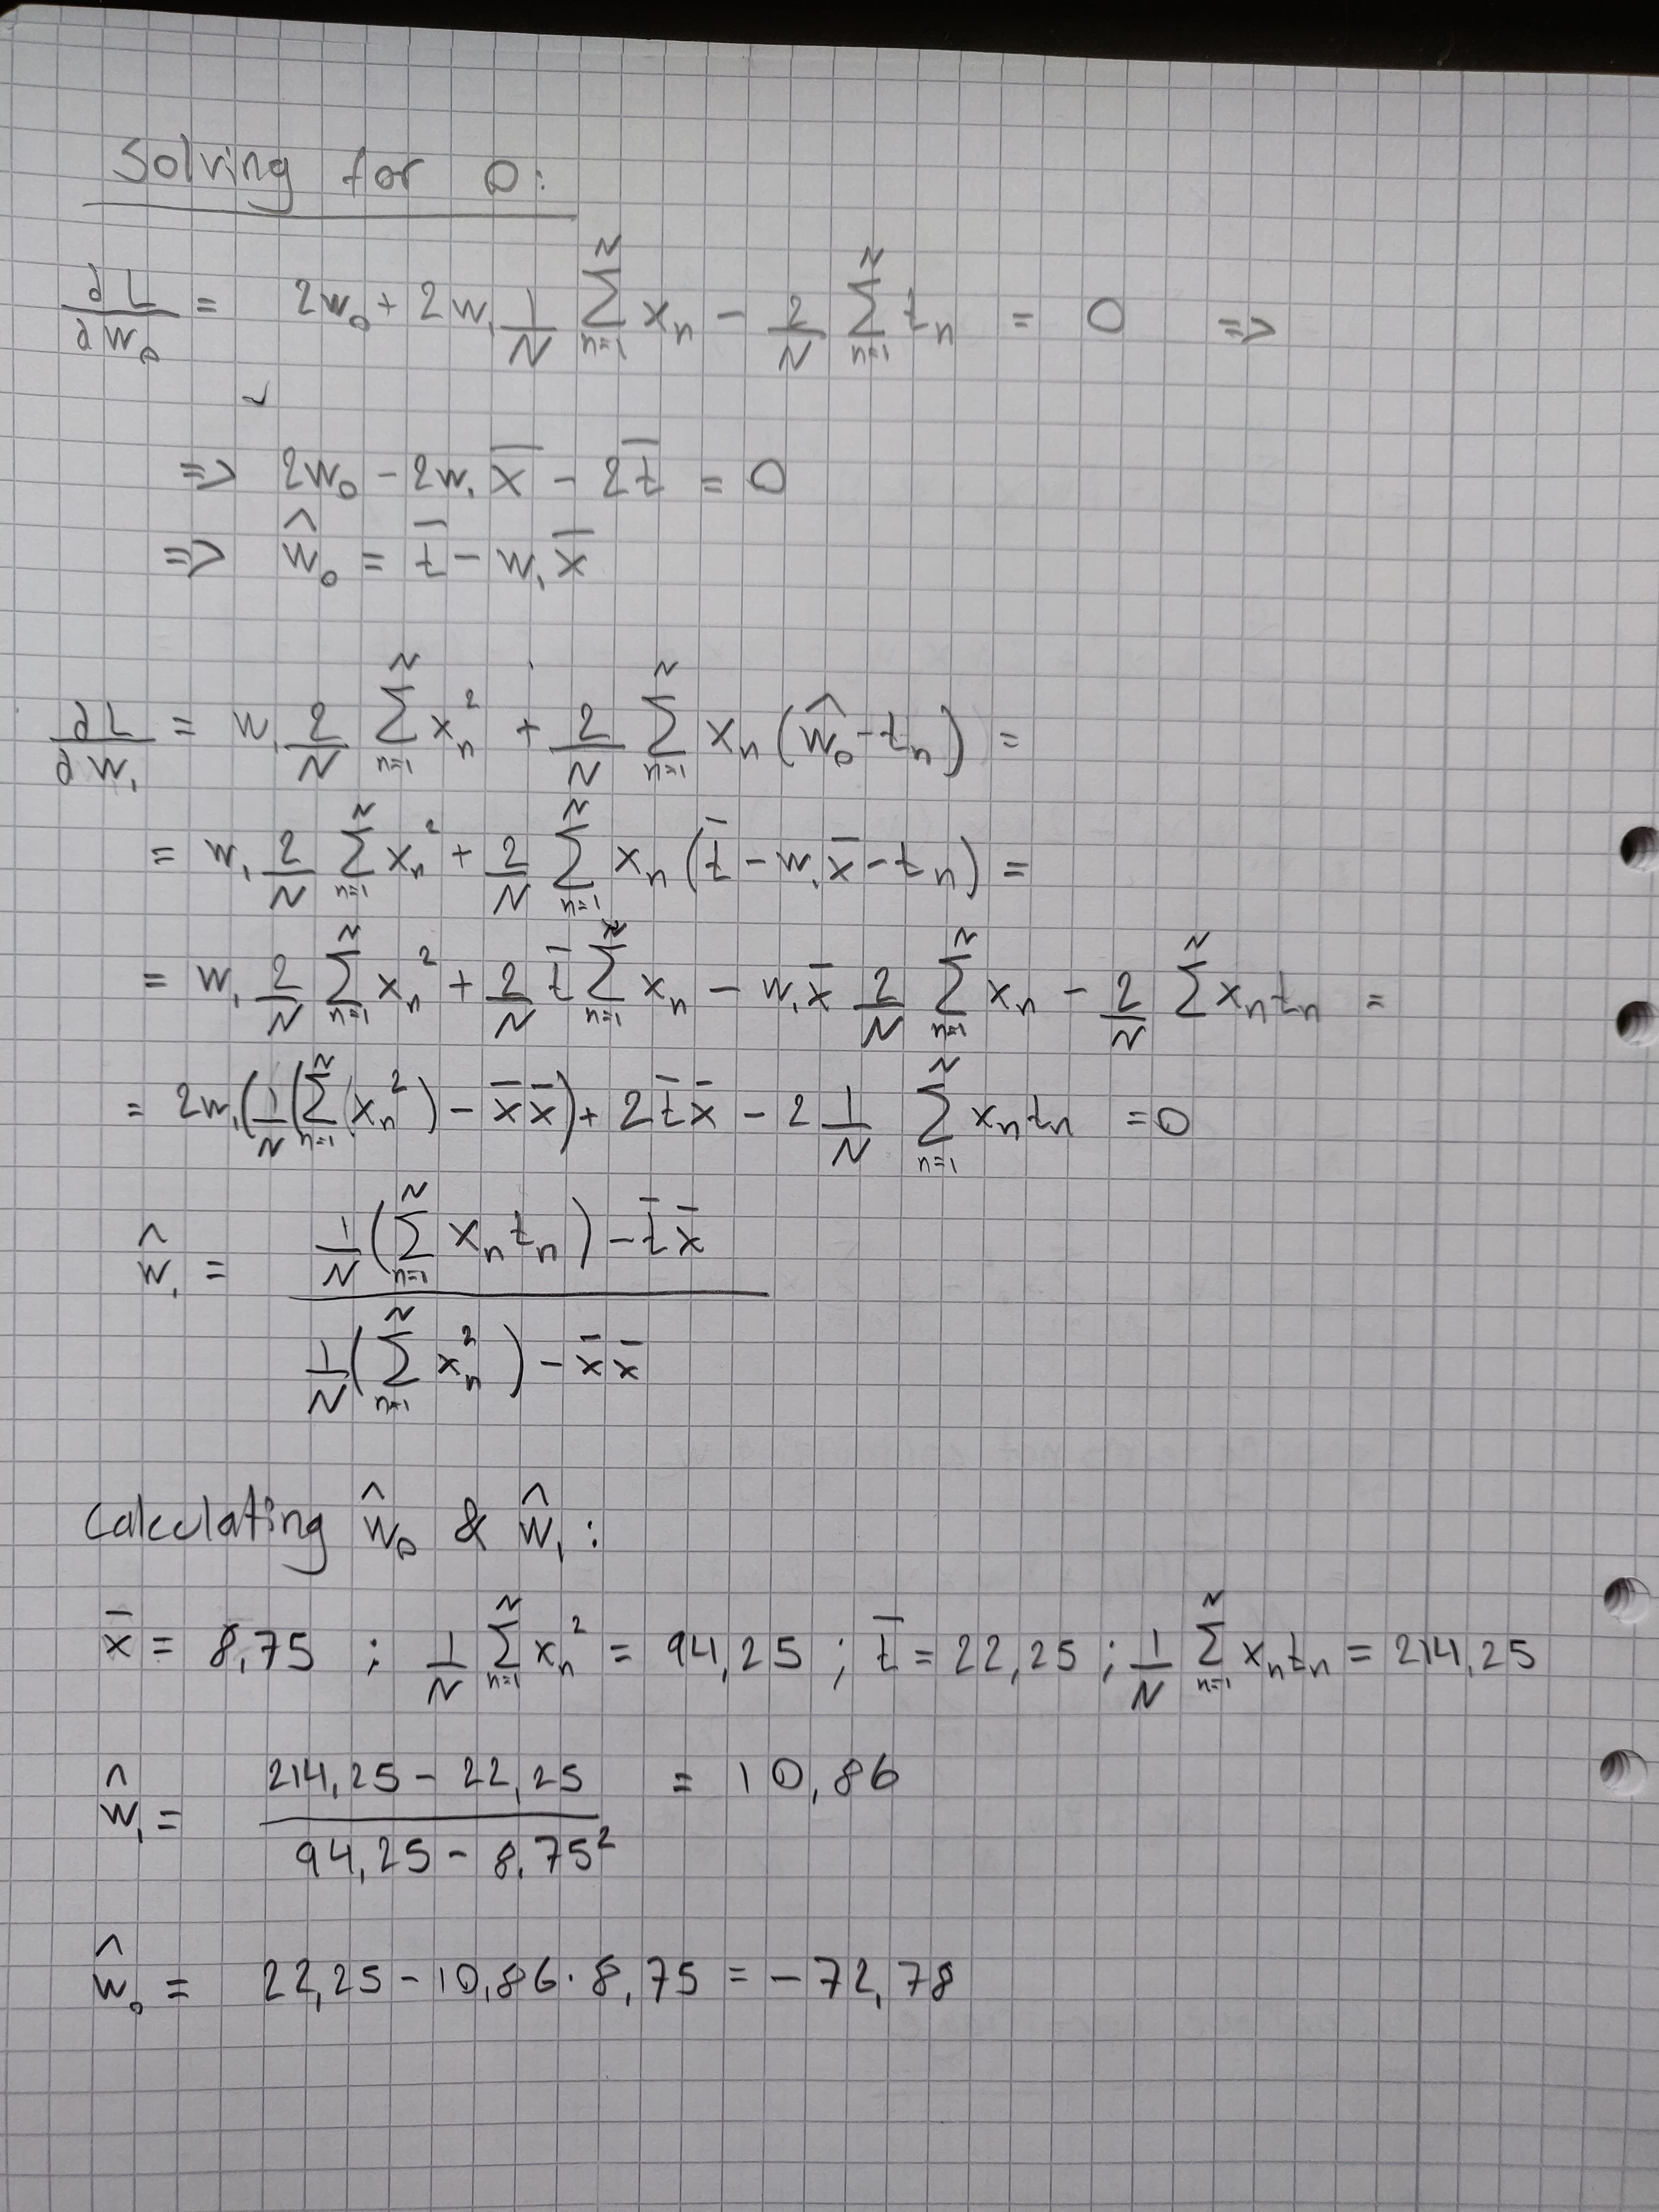 Solving for 0:
∂L/∂w₀ = 2w₀ + 2w₁ 1/N ∑ₙ₌₁ᴺ xₙ − 2/N ∑ₙ₌₁ᴺ tₙ = 0 =>
=> 2w₀ − 2w₁x̄ − 2t̄ = 0
=> ŵ₀ = t̄ − w₁x̄
∂L/∂w₁ = w₁ 2/N ∑ₙ₌₁ᴺ xₙ² + 2/N ∑ₙ₌₁ᴺ xₙ(ŵ₀ − tₙ) =
= w₁ 2/N ∑ₙ₌₁ᴺ xₙ² + 2/N ∑ₙ₌₁ᴺ xₙ(t̄ − w₁x̄ − tₙ) =
= w₁ 2/N ∑ₙ₌₁ᴺ xₙ² + 2/N t̄ ∑ₙ₌₁ᴺ xₙ − w₁x̄ 2/N ∑ₙ₌₁ᴺ xₙ − 2/N ∑ᴺ xₙtₙ =
= 2w₁(1/N(∑ₙ₌₁ᴺ(xₙ²) − x̄x̄) + 2t̄x̄ − 2 1/N ∑ₙ₌₁ᴺ xₙtₙ = 0
ŵ₁ = (1/N(∑ₙ₌₁ᴺ xₙtₙ) − t̄x̄) / (1/N(∑ₙ₌₁ᴺ xₙ²) − x̄x̄)
Calculating ŵ₀ & ŵ₁:
x̄ = 8,75 ; 1/N ∑ₙ₌₁ᴺ xₙ² = 94,25 ; t̄ = 22,25 ; 1/N ∑ₙ₌₁ᴺ xₙtₙ = 214,25
ŵ₁ = (214,25 − 22,25) / (94,25 − 8,75²) = 10,86
ŵ₀ = 22,25 − 10,86 · 8,75 = −72,78